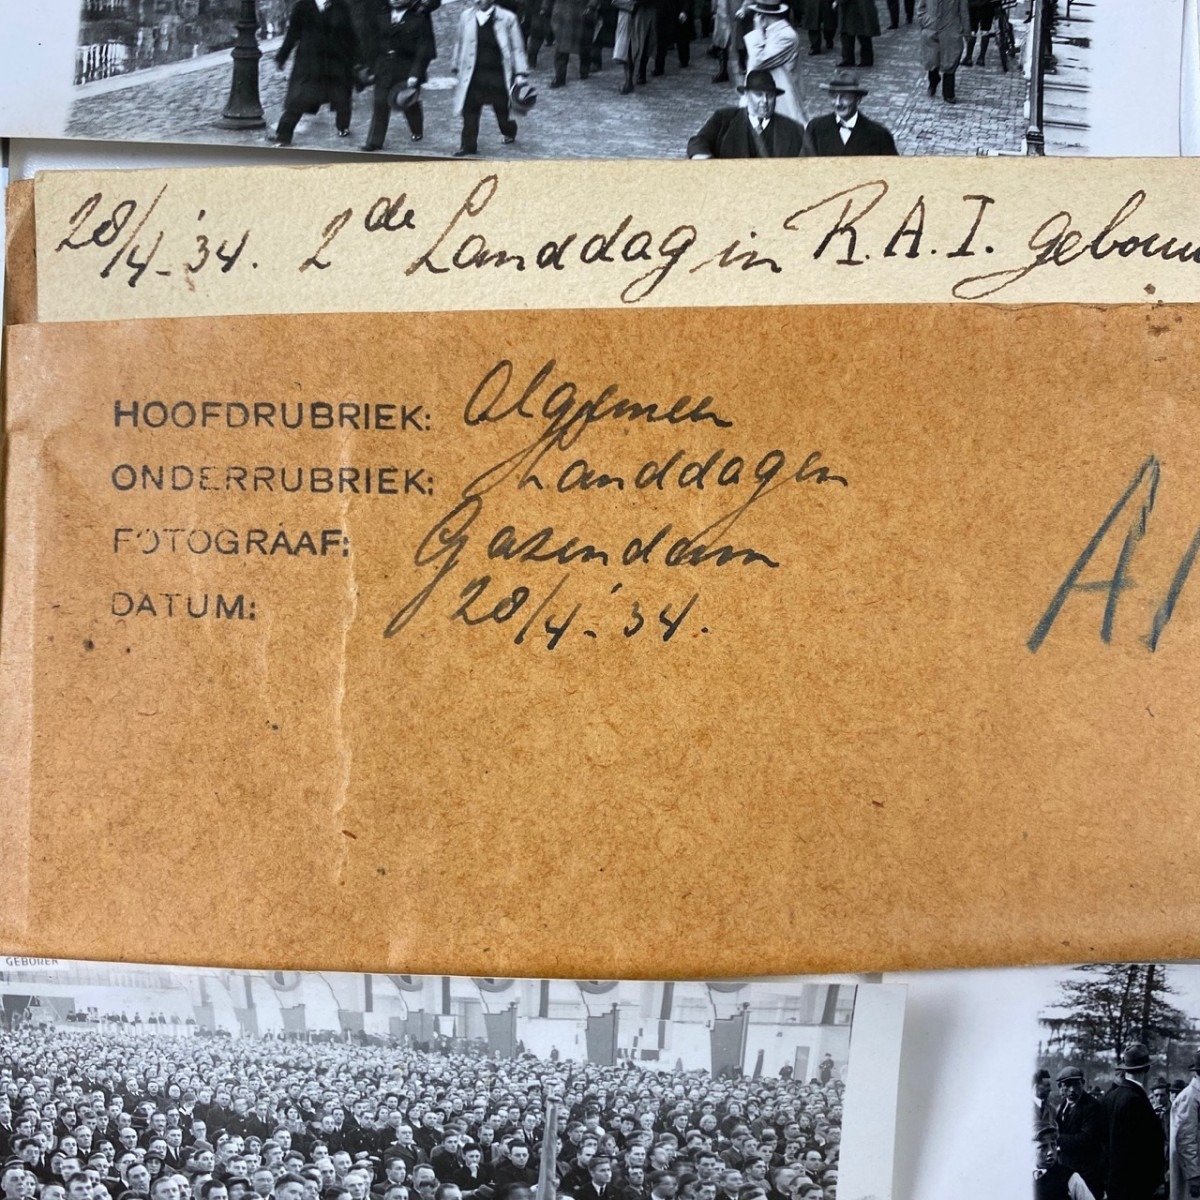 28/4-'34. 2de Landdag in R.A.I. gebouw
HOOFDRUBRIEK: Algemeen
ONDERRUBRIEK: Landdagen
FOTOGRAAF: Gazendam
DATUM: 28/4-'34.
A1
GEBOREN